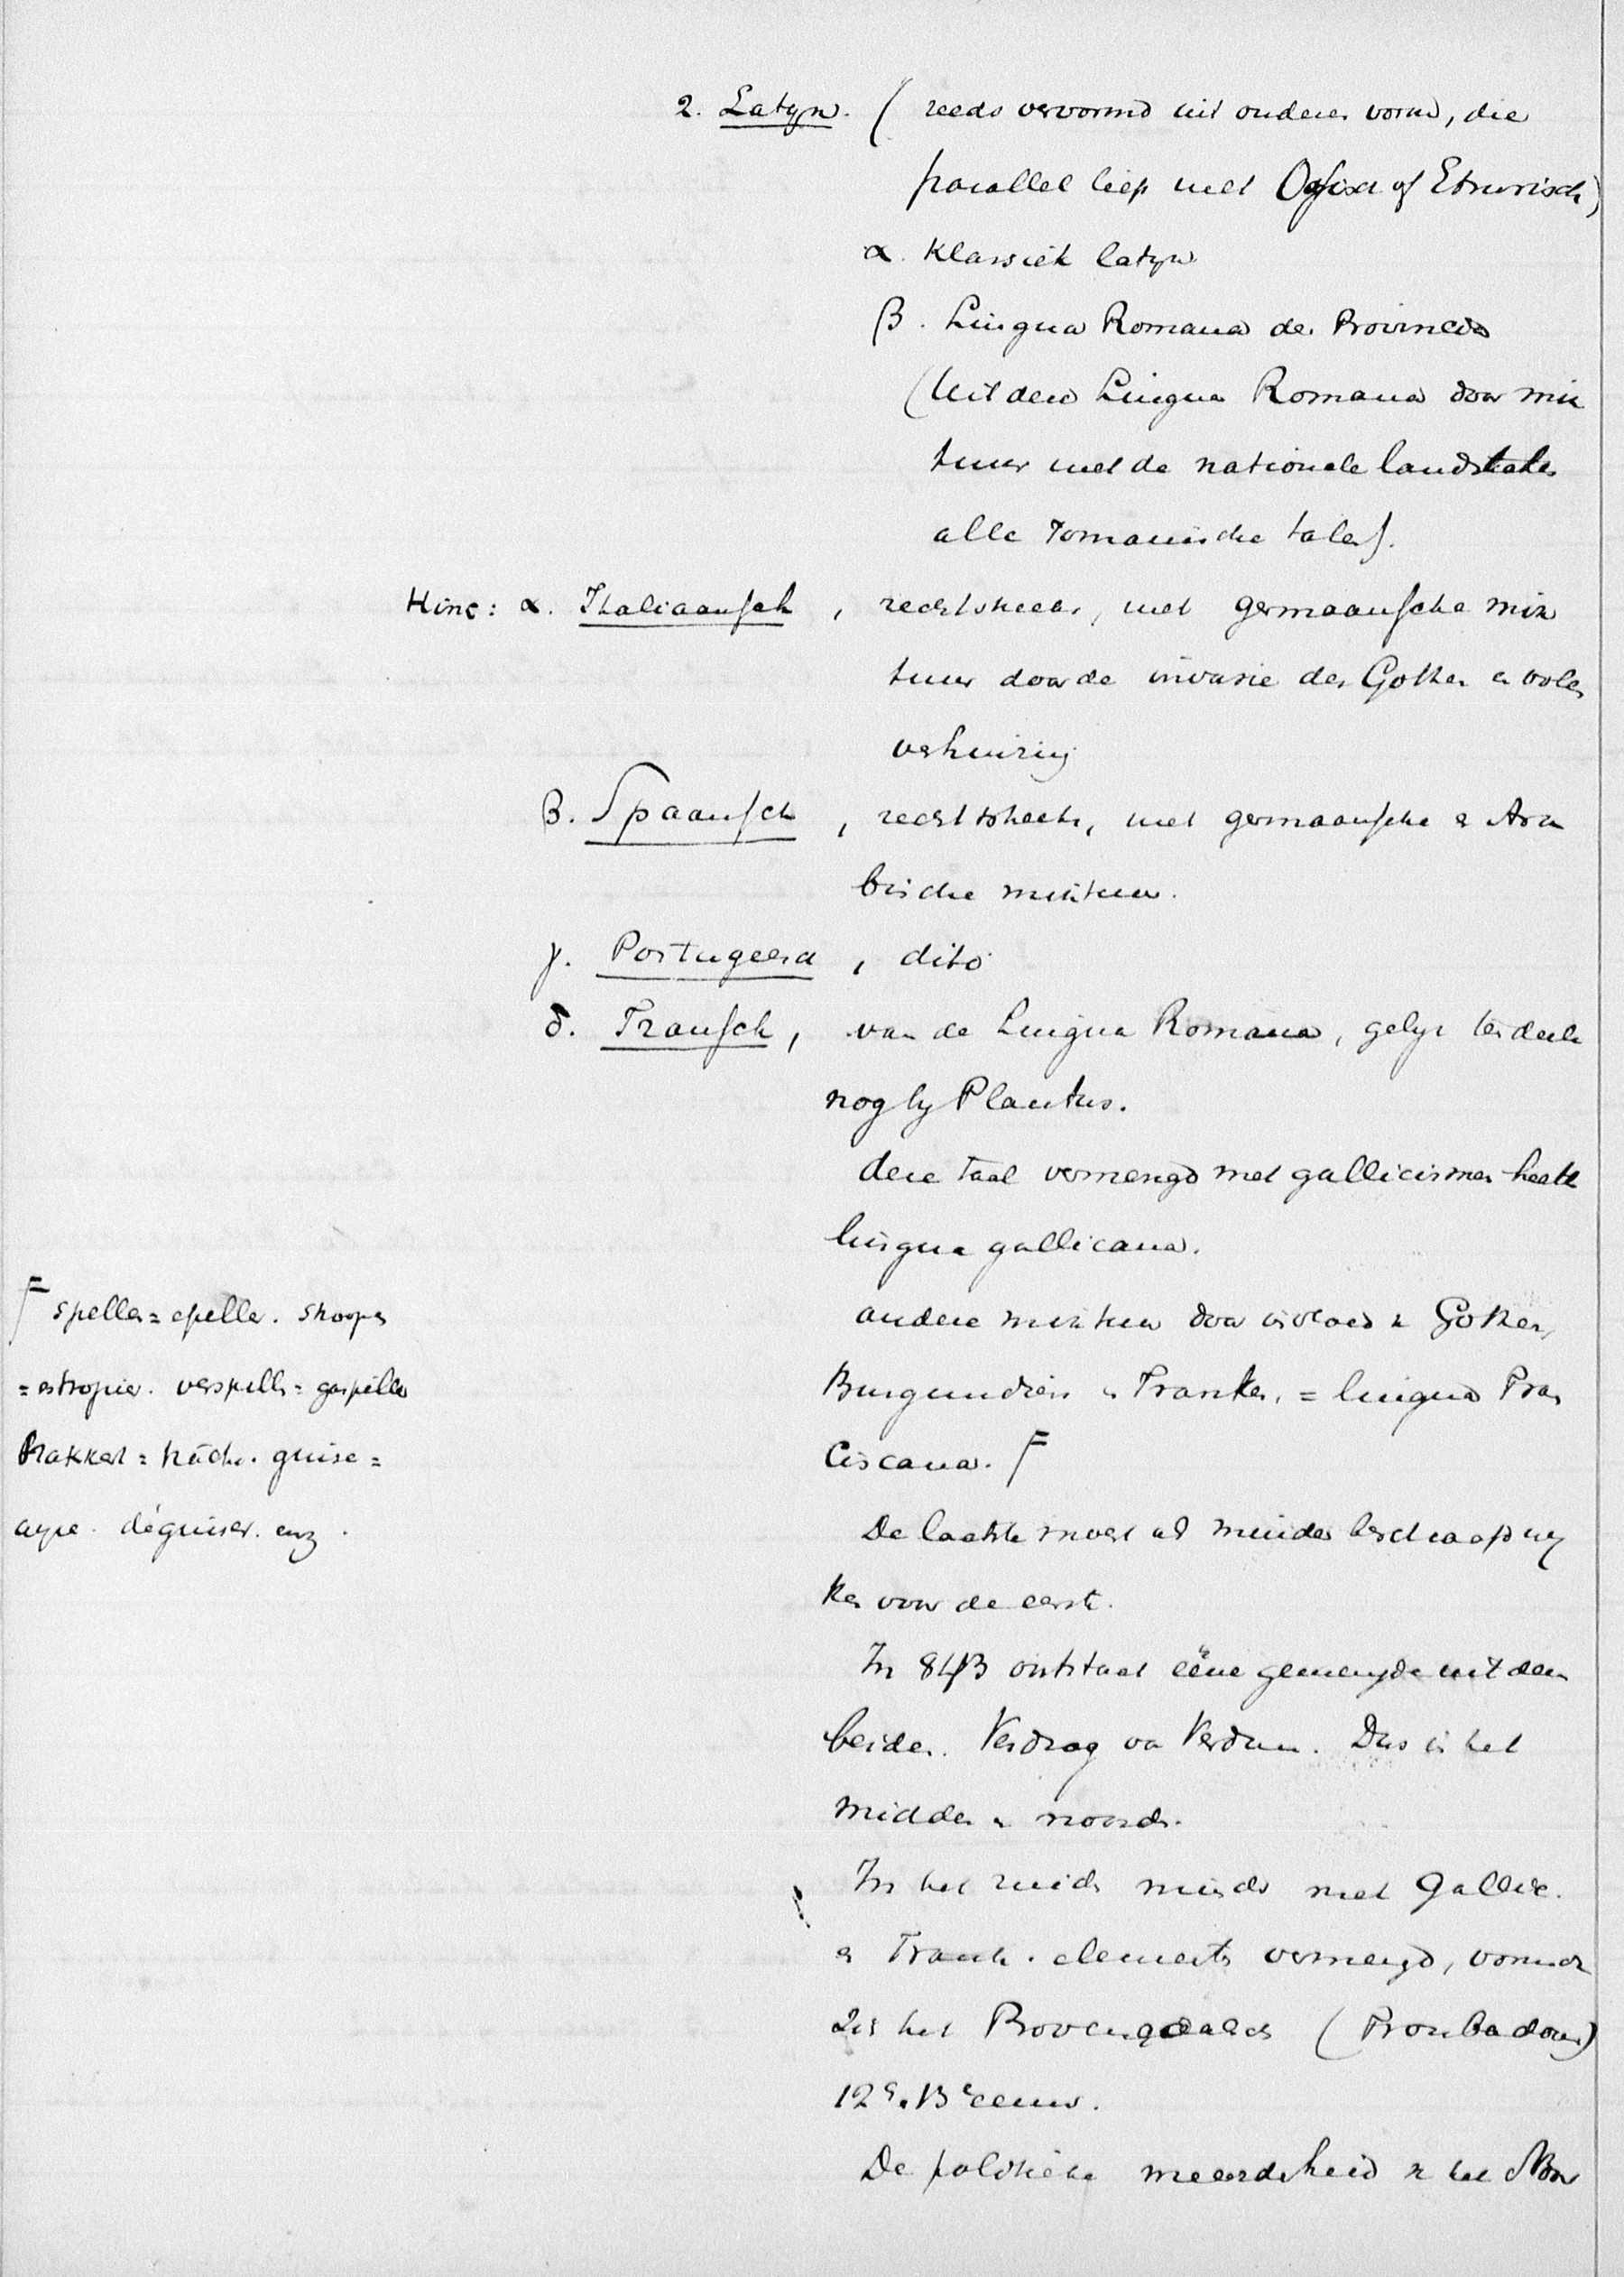 2. Latyn. ( reeds vervormd uit ouderen vorm, die
parallel liep met Oskisch of Etrurisch)
α. Klassiek latyn
β. Lingua Romana der Provincies
(Uit deze Lingua Romana door mix
tuur met de nationale landstalen
alle romanische talen).
Hinc: α. Italiaansch, rechtstreeks, met germaansche mix
tuur door de invasie der Gothen en volks
verhuizing
β. Spaansch, rechtstreeks, met germaansche en Ara
bische mixtuur.
γ. Portugeesch, dito
δ. Fransch, van de Lingua Romana, gelyk ten deele
nog by Plautus.
deze taal vermengd met gallicismen heette
lingua gallicana.
andere mixtuur door invloed v Gothen,
Burgundiërs en Franken, = lingua Fran
ciscana. F
F spellen = epeller. stroopen
= estropier. verspillen = gaspiller
trakken = tâcher. guise =
wyze. déguiser. enz.
De laatste moest als minder beschaafd wy
ken voor de eerste.
In 843 ontstaat ééne gemengde uit deze
beiden. Verdrag van Verdun. Dus in het
midden en noorden.
In het zuiden minder met Gallic.
en Frank. elementen vermengd, vormde
zich het Provençaalsch (Troubadours)
12e en 13e eeuw.
De politieke meerderheid v het Noor